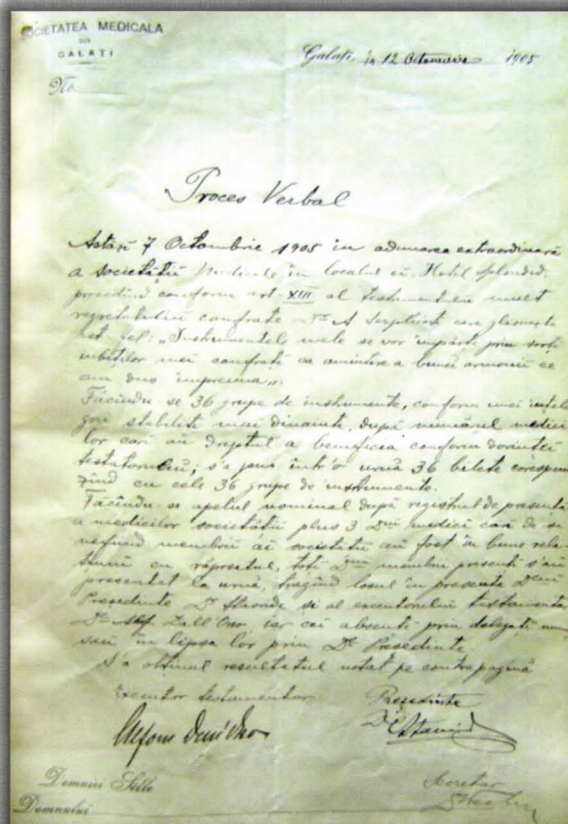 SOCIETATEA MEDICALA
DIN
GALATI
No.
Galați, în 12 Octomvrie 1905
Proces Verbal
Astăzi 7 Octombrie 1905 în adunarea extraordinară
a societății Medicale în localul ei Hotel Splendid,
procedînd conform art XIII al testamentului
regretatului confrate Dr A
ast-fel: „Instrumentele mele se vor împărți prin sorți
iubiților mei confrați ca amintire a bunei armonii ce
am dus împreună".
Făcîndu-se 36 grupe de instrumente, conform unei înțele
geri stabilite mai dinainte, după numărul medici
lor cari au dreptul a beneficia conform dorinței
testatorului; s'a pus într'o urnă 36 bilete corespun
zînd cu cele 36 grupe de instrumente.
Făcîndu-se apelul nominal după registrul de presență
a medicilor societății plus 3 Dnii medici cari de și
nefiind membrii ai societății au fost în bune rela
țiuni cu răposatul, toți Dnii membri presenți s'au
presentat la urnă, trăgînd losul în presența Dlui
Președinte Dr și al executorului testamentar
Dr iar cei absenți prin delegați
sau în lipsa lor prin Dl Președinte
S'a obținut resultatul notat pe contrapagină
Executor testamentar
Președinte
Dr
Secretar
Domniei Séle
Domnului